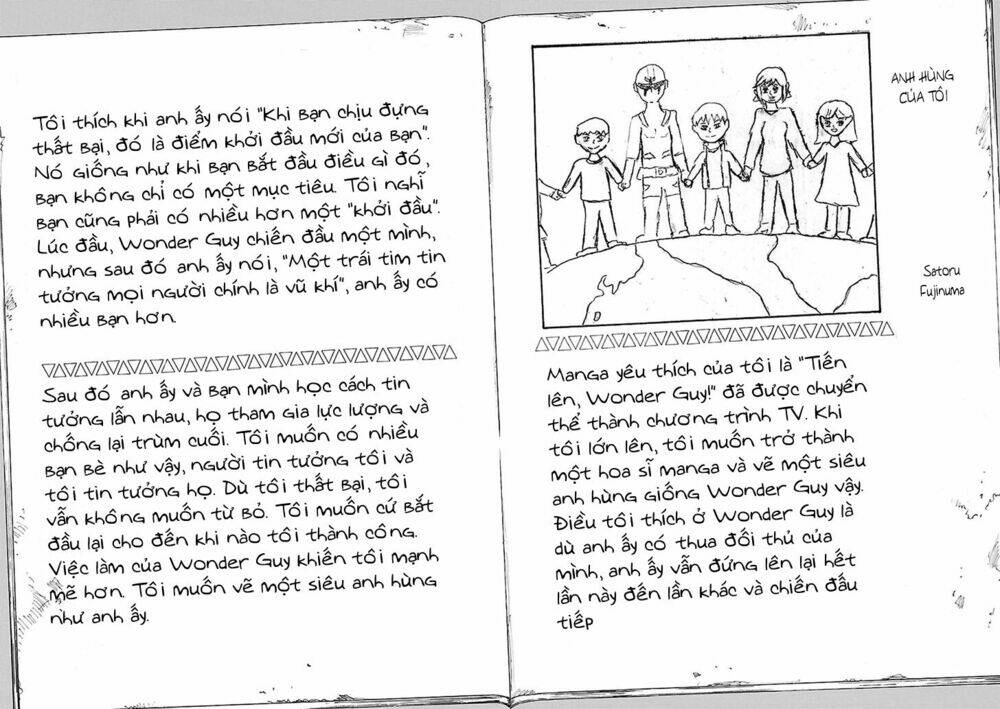 ANH HÙNG
CỦA TÔI
Satoru
Fujinuma
Manga yêu thích của tôi là "Tiến
lên, Wonder Guy!" đã được chuyển
thể thành chương trình TV. Khi
tôi lớn lên, tôi muốn trở thành
một hoa sĩ manga và vẽ một siêu
anh hùng giống Wonder Guy vậy.
Điều tôi thích ở Wonder Guy là
dù anh ấy có thua đối thủ của
mình, anh ấy vẫn đứng lên lại hết
lần này đến lần khác và chiến đấu
tiếp
Tôi thích khi anh ấy nói "Khi bạn chịu đựng
thất bại, đó là điểm khởi đầu mới của bạn".
Nó giống như khi bạn bắt đầu điều gì đó,
bạn không chỉ có một mục tiêu. Tôi nghĩ
bạn cũng phải có nhiều hơn một "khởi đầu".
Lúc đầu, Wonder Guy chiến đầu một mình,
nhưng sau đó anh ấy nói, "Một trái tim tin
tưởng mọi người chính là vũ khí", anh ấy có
nhiều bạn hơn.
Sau đó anh ấy và bạn mình học cách tin
tưởng lẫn nhau, họ tham gia lực lượng và
chống lại trùm cuối. Tôi muốn có nhiều
bạn bè như vậy, người tin tưởng tôi và
tôi tin tưởng họ. Dù tôi thất bại, tôi
vẫn không muốn từ bỏ. Tôi muốn cứ bắt
đầu lại cho đến khi nào tôi thành công.
Việc làm của Wonder Guy khiến tôi mạnh
mẽ hơn. Tôi muốn vẽ một siêu anh hùng
như anh ấy.